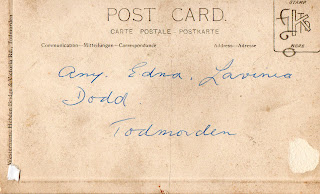 POST CARD.
CARTE POSTALE POSTKARTE
Communication—Mitteilungen—Correspondance
Address—Adresse
STAMP
MORE
Amy. Edna. Lavinia
Dodd
Todmorden